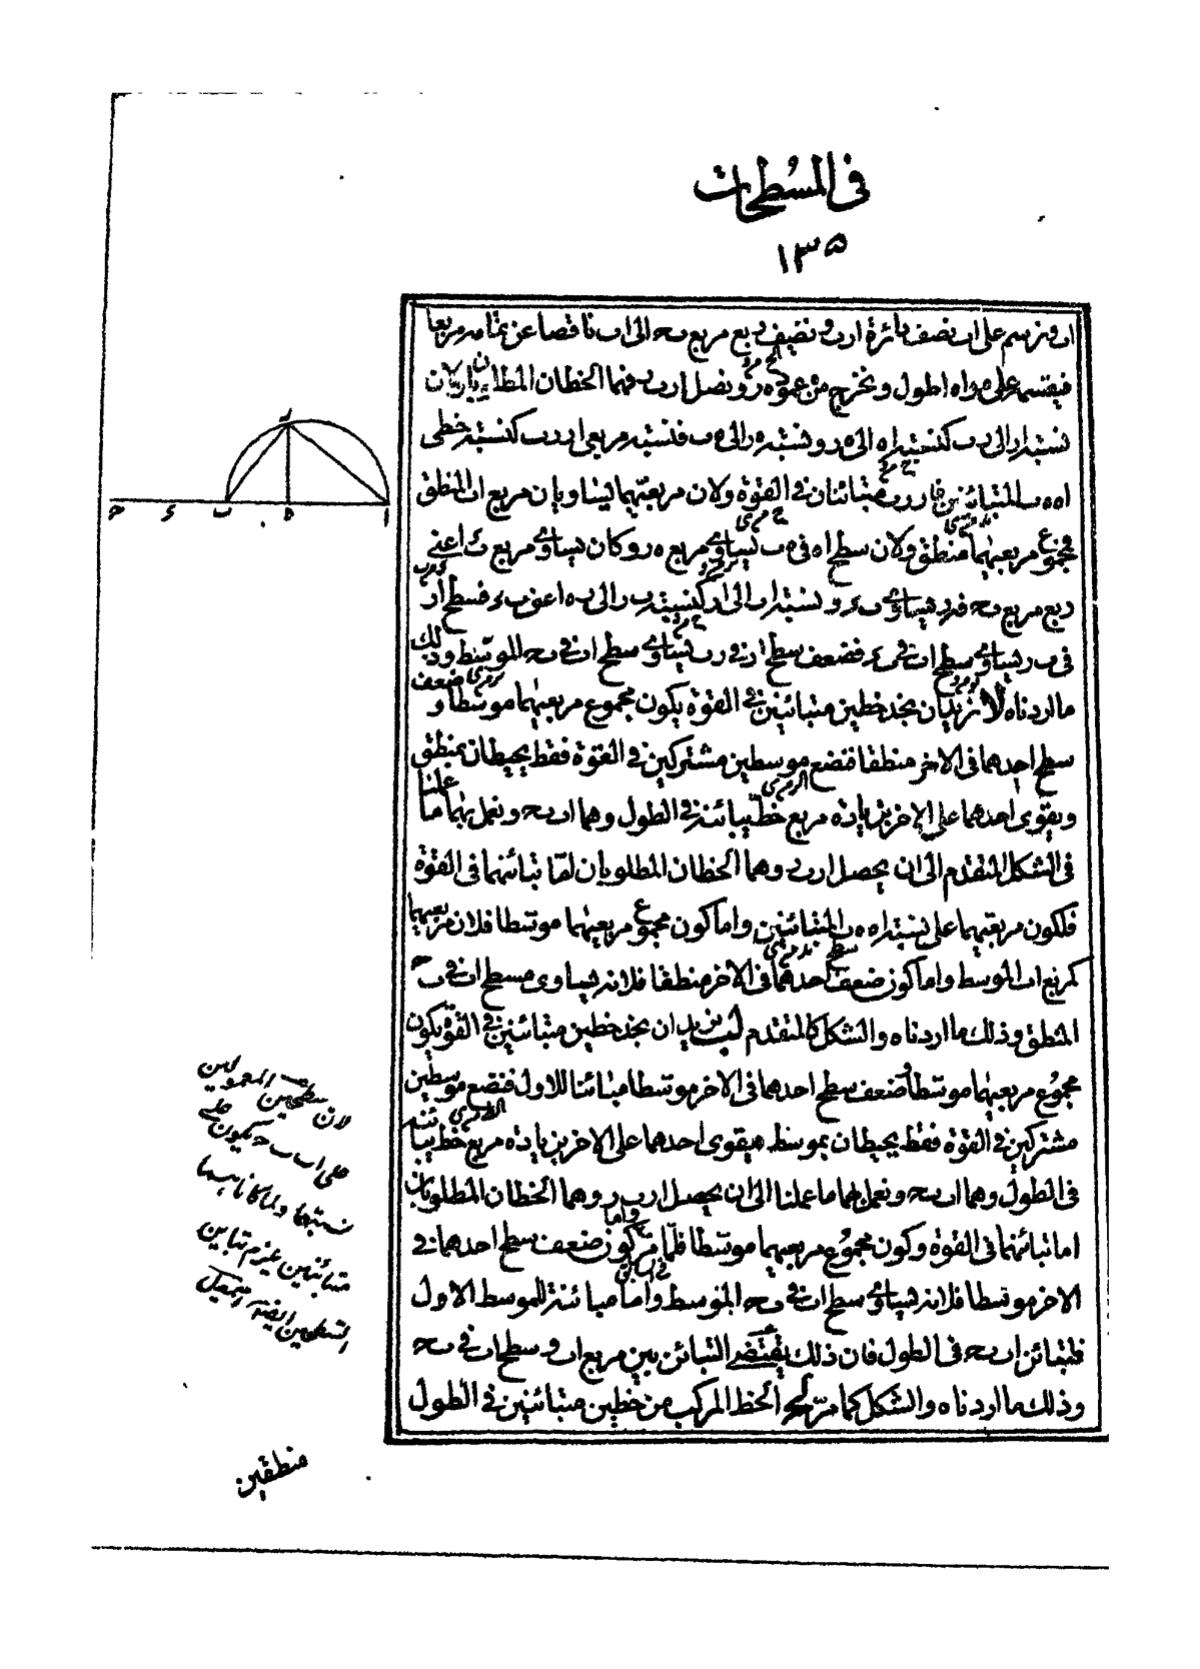 في المسطحات
١٣٥
اب ونرسم على اب نصف دائرة ارب ونضيف ربع مربع بحـ الى اب ناقصا عن تمامه مربعا
فينقسم على ه واه اطول ونخرج من ه عمود ه ر ونصل ار رب فهما الخطان المطلوبان لان
نسبة ار الى رب كنسبة اه الى ه ر ونسبة ه ر الى ه ب فنسبة مربعي ار رب كنسبة خطي
اه ه ب المتباينين فار رب متباينان في القوة ولان مربعيهما يساويان مربع اب المنطق
فمجموع مربعيهما منطق ولان سطح اه في ه ب يساوي مربع ه ر وكان يساوي مربع ب ء اعني
ربع مربع بحـ فه ر يساوي ب ء ونسبة اب الى ار كنسبة رب الى ر ه اعني ب ء فسطح ار
في ب ر يساوي سطح اب في ب ء فضعف سطح ار في رب يساوي سطح اب في بحـ الموسط وذلك
ما اردناه لا نريد ان نجد خطين متباينين في القوة يكون مجموع مربعيهما موسطا و ضعف
سطح احدهما في الاخر منطقا فنضع موسطين مشتركين في القوة فقط يحيطان بمنطق
ويقوى احدهما على الاخر بزيادة مربع خط يباينه في الطول وهما اب بحـ ونعمل بهما ما عملنا
في الشكل المتقدم الى ان يحصل ار رب وهما الخطان المطلوبان اما تباينهما في القوة
فلكون مربعيهما على نسبة اه ه ب المتباينين واما كون مجموع مربعيهما موسطا فلان مربعيهما
كمربع اب الموسط واما كون ضعف سطح احدهما في الاخر منطقا فلانه يساوي مسطح اب في بحـ
المنطق وذلك ما اردناه والشكل كالمتقدم لب نريد ان نجد خطين متباينين في القوة يكون
مجموع مربعيهما موسطا وضعف سطح احدهما في الاخر موسطا مباينا للاول فنضع موسطين
مشتركين في القوة فقط يحيطان بموسط ويقوى احدهما على الاخر بزيادة مربع خط يباينه
في الطول وهما اب بحـ ونعمل بهما ما عملنا الى ان يحصل ار رب وهما الخطان المطلوبان
اما تباينهما في القوة وكون مجموع مربعيهما موسطا فلما مر واما كون ضعف سطح احدهما في
الاخر موسطا فلانه يساوي سطح اب في بحـ الموسط واما مباينته للموسط الاول
فلتباين اب بحـ في الطول فان ذلك يقتضي التباين بين مربع اب وسطح اب في بحـ
وذلك ما اردناه والشكل كما مر لجـ الخط المركب من خطين متباينين في الطول
ر
ا ه ب ء حـ
لان سطحين المعمولين
على اب ب حـ يكون على
نسبتهما ولما كانا
متباينين فيلزم تباين
السطحين ايضا
منطقين